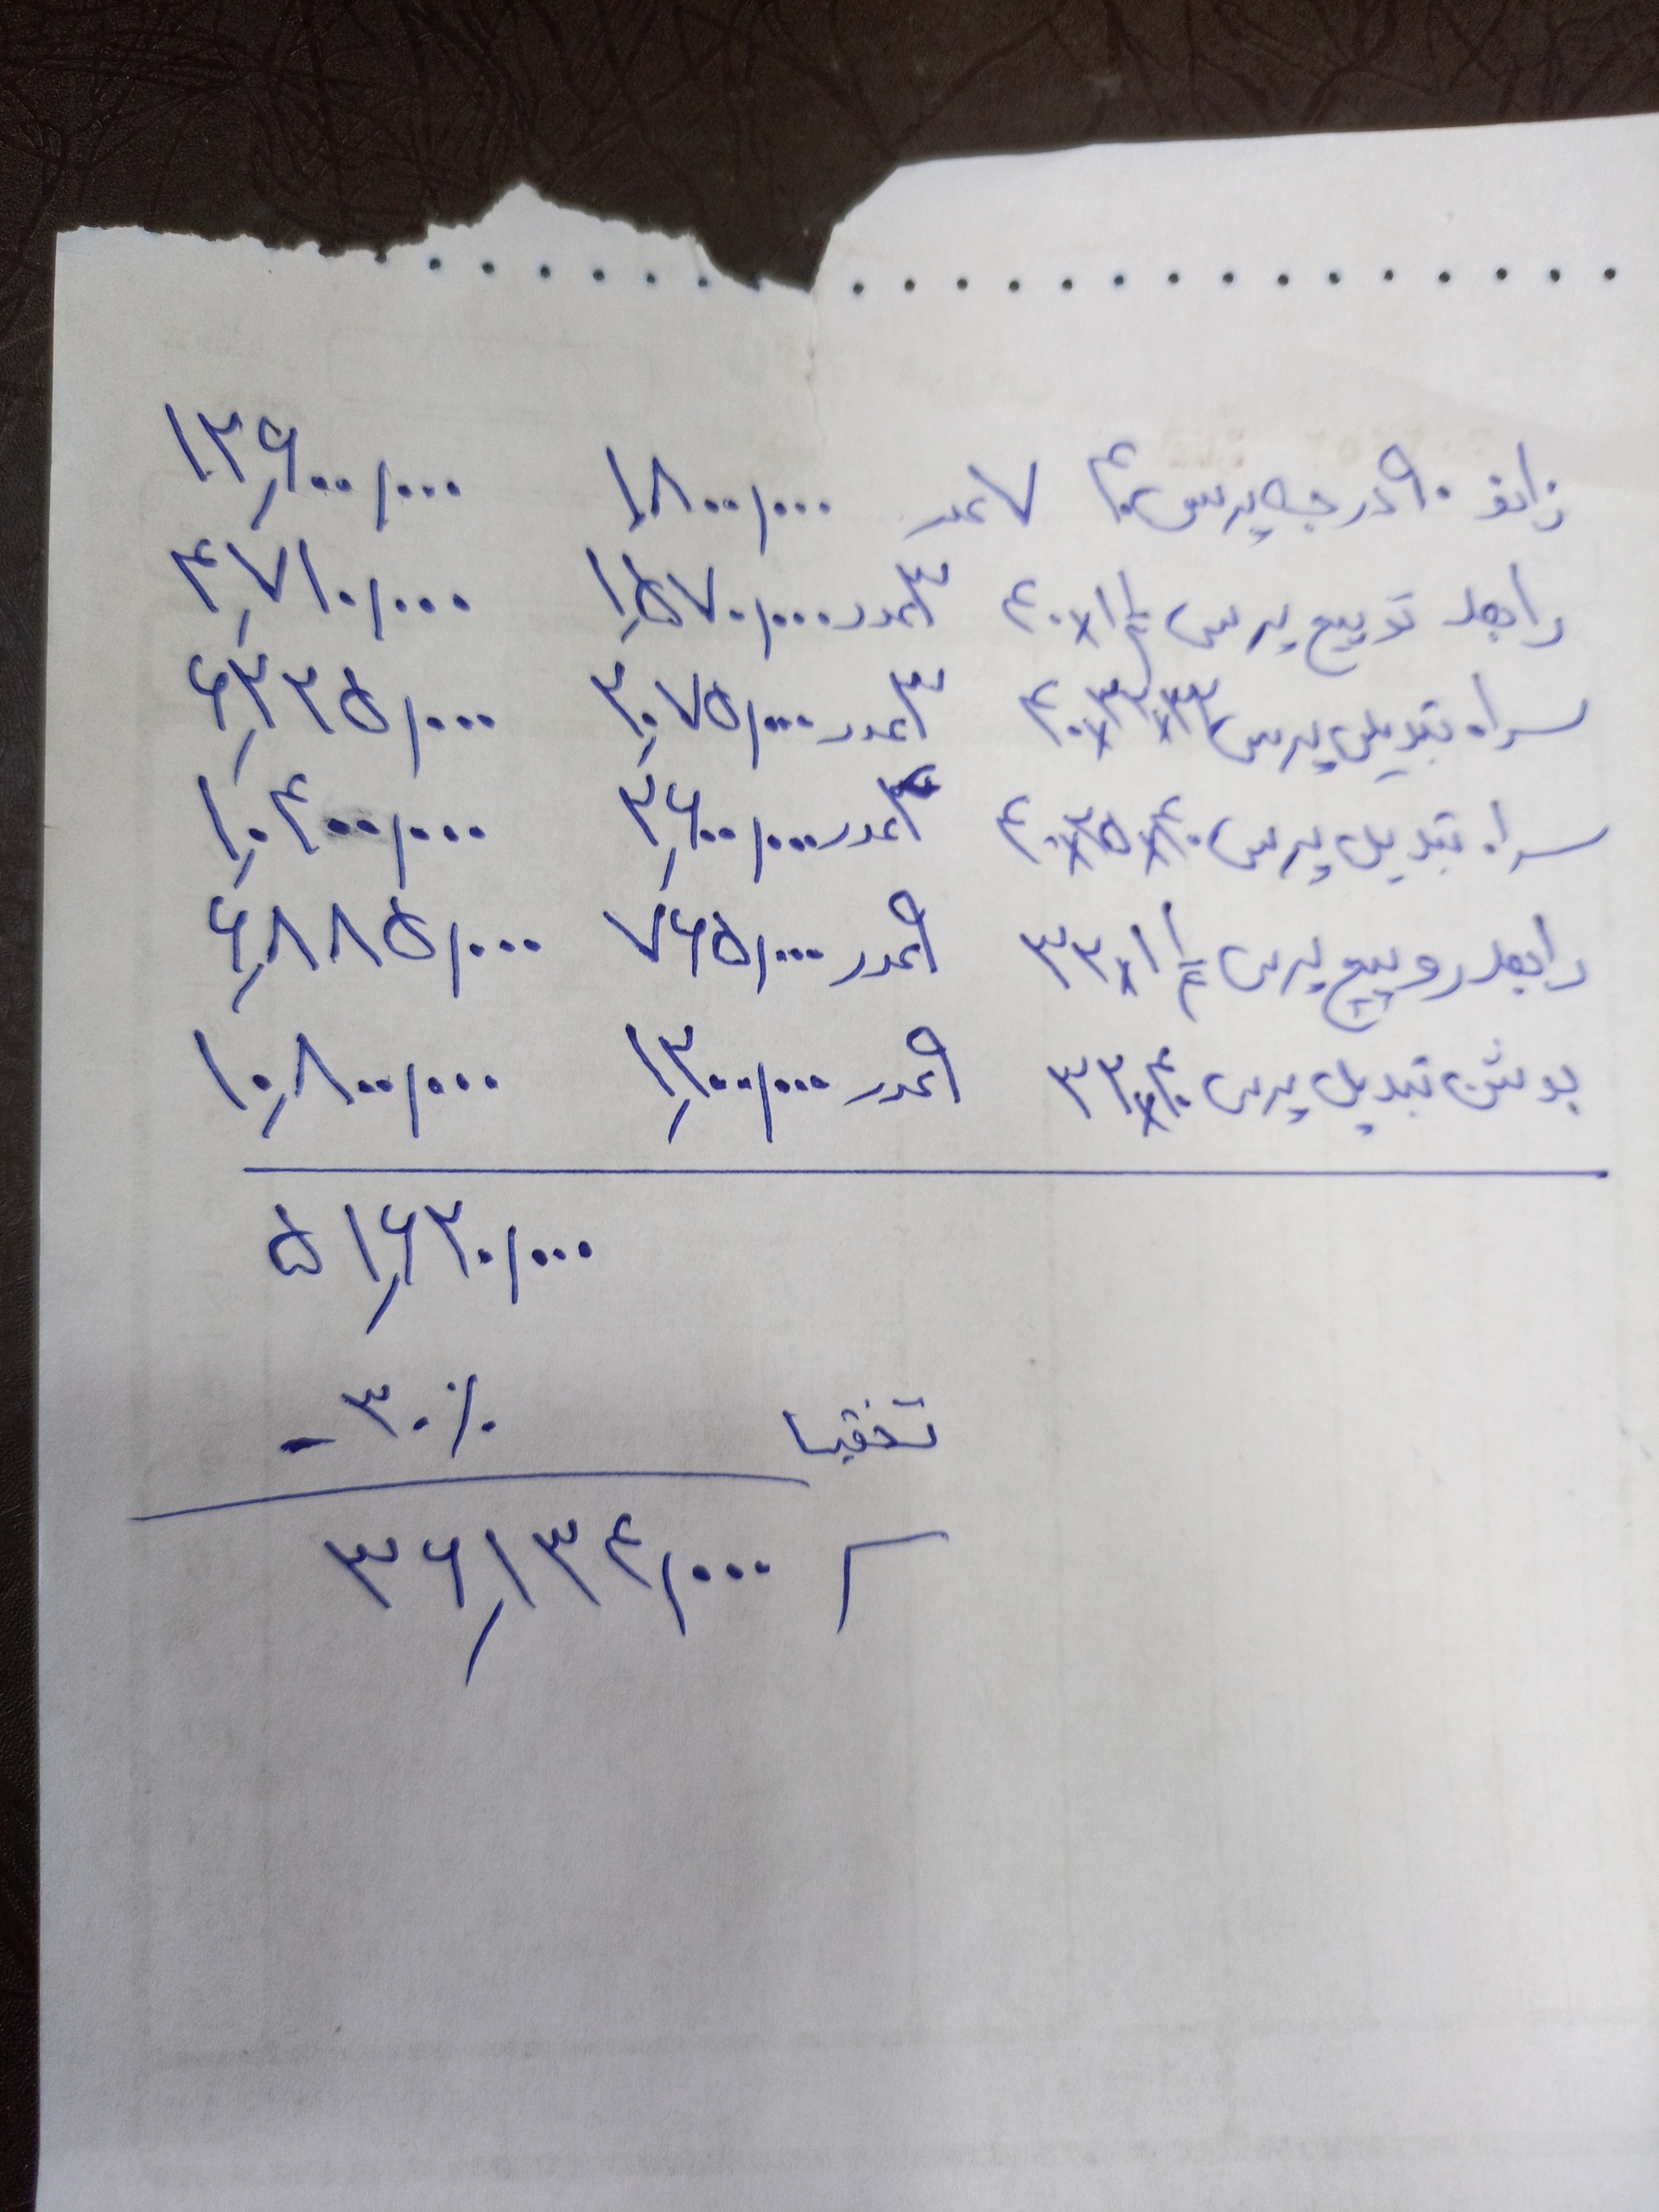 زانو ۹۰ درجه پرس ۴۰ ۷ عدد ۱,۸۰۰,۰۰۰ ۱۲,۶۰۰,۰۰۰
رابط توپیچ پرس ۴۰×۱ ۱/۴ ۳ عدد ۱,۵۷۰,۰۰۰ ۴,۷۱۰,۰۰۰
سراه تبدیل پرس ۴۰×۳۲×۳۲ ۳ عدد ۲,۰۷۵,۰۰۰ ۶,۲۲۵,۰۰۰
سراه تبدیل پرس ۴۰×۲۵×۴۰ ۴ عدد ۲,۶۰۰,۰۰۰ ۱۰,۴۰۰,۰۰۰
رابط روپیچ پرس ۳۲×۱ ۱/۴ ۹ عدد ۷۶۵,۰۰۰ ۶,۸۸۵,۰۰۰
بوشن تبدیل پرس ۳۲×۴۰ ۹ عدد ۱,۲۰۰,۰۰۰ ۱۰,۸۰۰,۰۰۰
۵۱,۶۲۰,۰۰۰
تخفیف ۳۰٪ -
۳۶,۱۳۴,۰۰۰